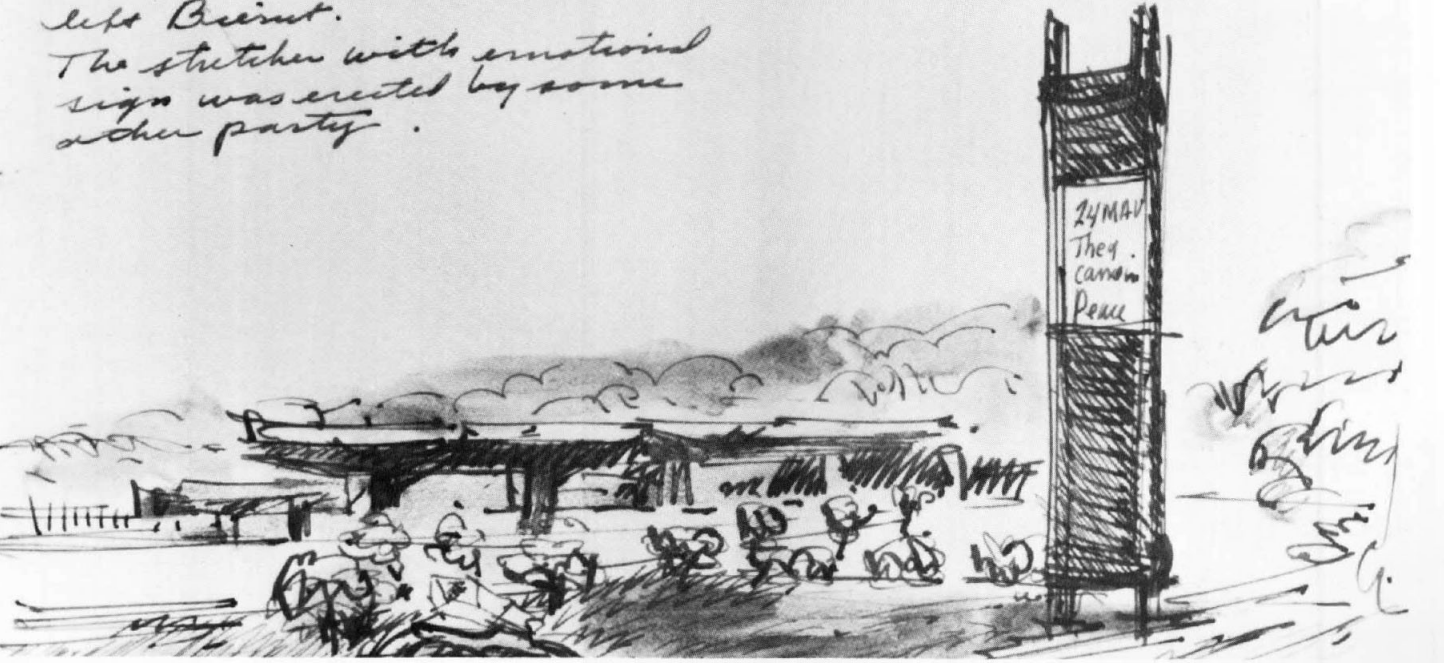 left Beirut.
The stretcher with emotional
sign was erected by some
other party.
24 MAU
They
came in
Peace